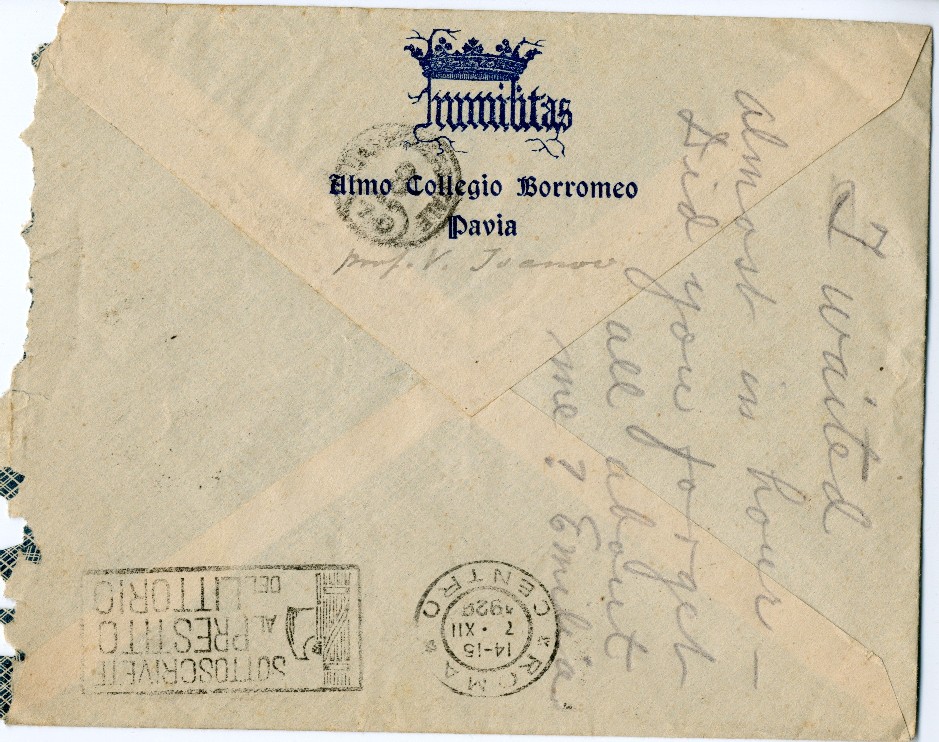 humilitas
Almo Collegio Borromeo
Pavia
prof. V. Ivanov
I waited
almost in hour -
Did you forget
all about
me? Emilia
ROMA CENTRO
14-15
7 · XII
1926
SOTTOSCRIVETE
AL PRESTITO
DEL LITTORIO